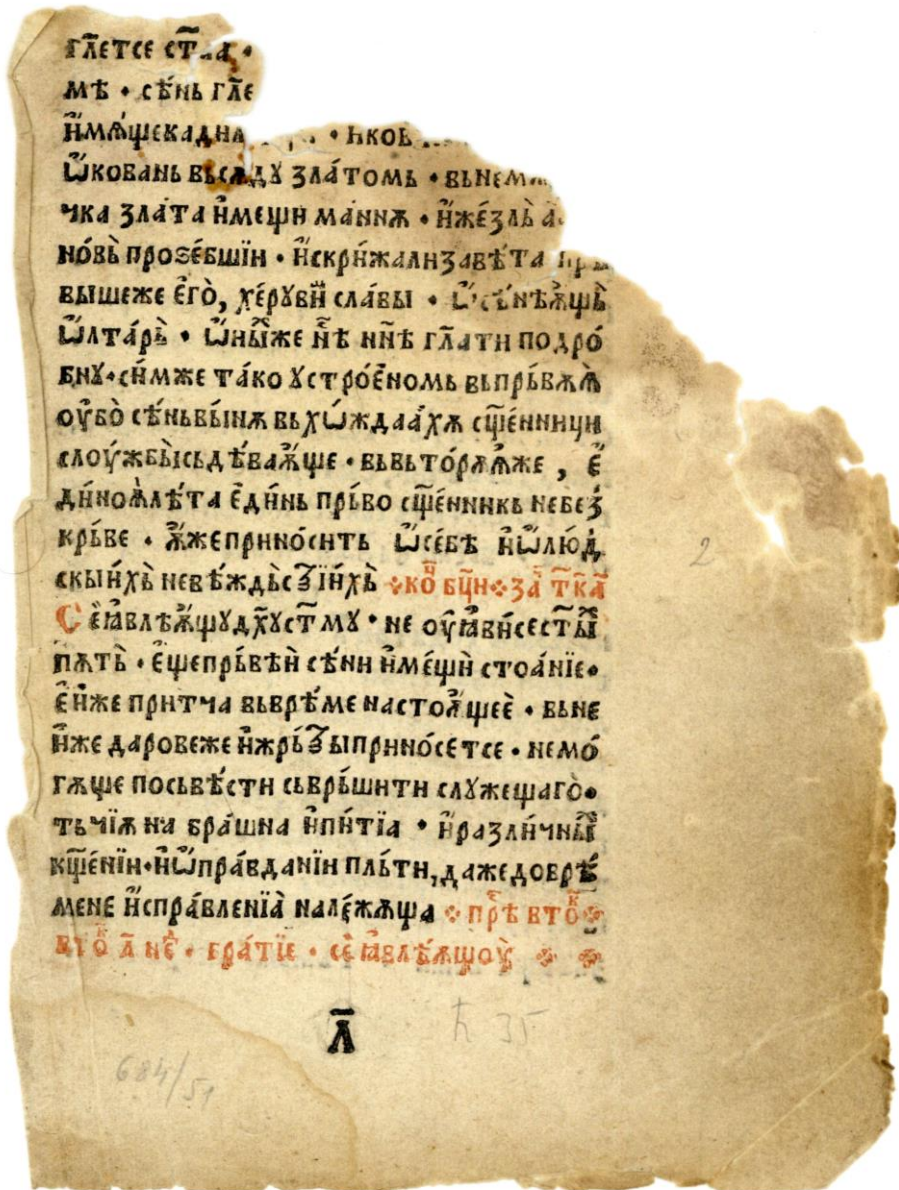 гл҃етсе ст҃аа •
мѣ • сѣ́нь гл҃е
и҆мѫ́щекадил • ꙗков
ѡ҆ковань вьсѫ́дꙋ зла́томь • вьнем
чка злата и҆меѡщи ма́ннѫ • и҆же́злъ а
но́въ прозе́бшїи • и҆скри́жали заве́та
вышеже є҆го̀, хе́рꙋви҆ славы • ѡ҆сѣнѣѫ́щь
ѡ҆лта́рь • ѡ҆ны́хже нѣ нн҃ѣ гл҃ати подро́
бнꙋ • си́мже та́ко ꙋстро́е҆номь вьпрь́вѫѫ
ѹ҆бо̀ сѣ́ньвы́нѫ вьхѡ́ждаа҆хѫ сщ҃е́нници
слоу́жбы̀сьдѣ́ваѫ҆ще • вьвьто́рѫѫже , є҆
ди́ноѫлѣ́та є҆ди́нь прь́во сщ҃е́нникь небез̾
крь́ве • ѫ҆жеприно́сить ѡ҆се́бѣ и҆ѡ҆лю́д
скыи́хъ неве́ждьсᲅвїи́хъ
С є҆ꙗвлѣѫ҆щꙋдх҃ꙋст҃мꙋ • не ѹ҆ꙗви́сест҃ы́и
пѫ́ть • є҆щепрь́вѣи сѣ́ни и҆ме́щи стоа́нїе •
є҆и́же притча вьврѣ́ме настоѫ́щеѐ • вьне
и҆же даровеже и҆жрь́твыприно́сетсе • немо́
гѫще посьвѣ́сти сьврь́шити слꙋжещаго̀ •
тьчїѫ на бра́шна и҆пи́тїа • и҆разли́чны
кщ҃е́нїи • и҆ѡ҆пра́вданїи пль́ти, дажедоврѣ́
мене и҆спра́вленїа̀ нале́жѫща прѣ вто
вто а҃ не • бра́тїе • се ꙗвлѣ́ѫщоу
а҃
2
ћ 35
684/51